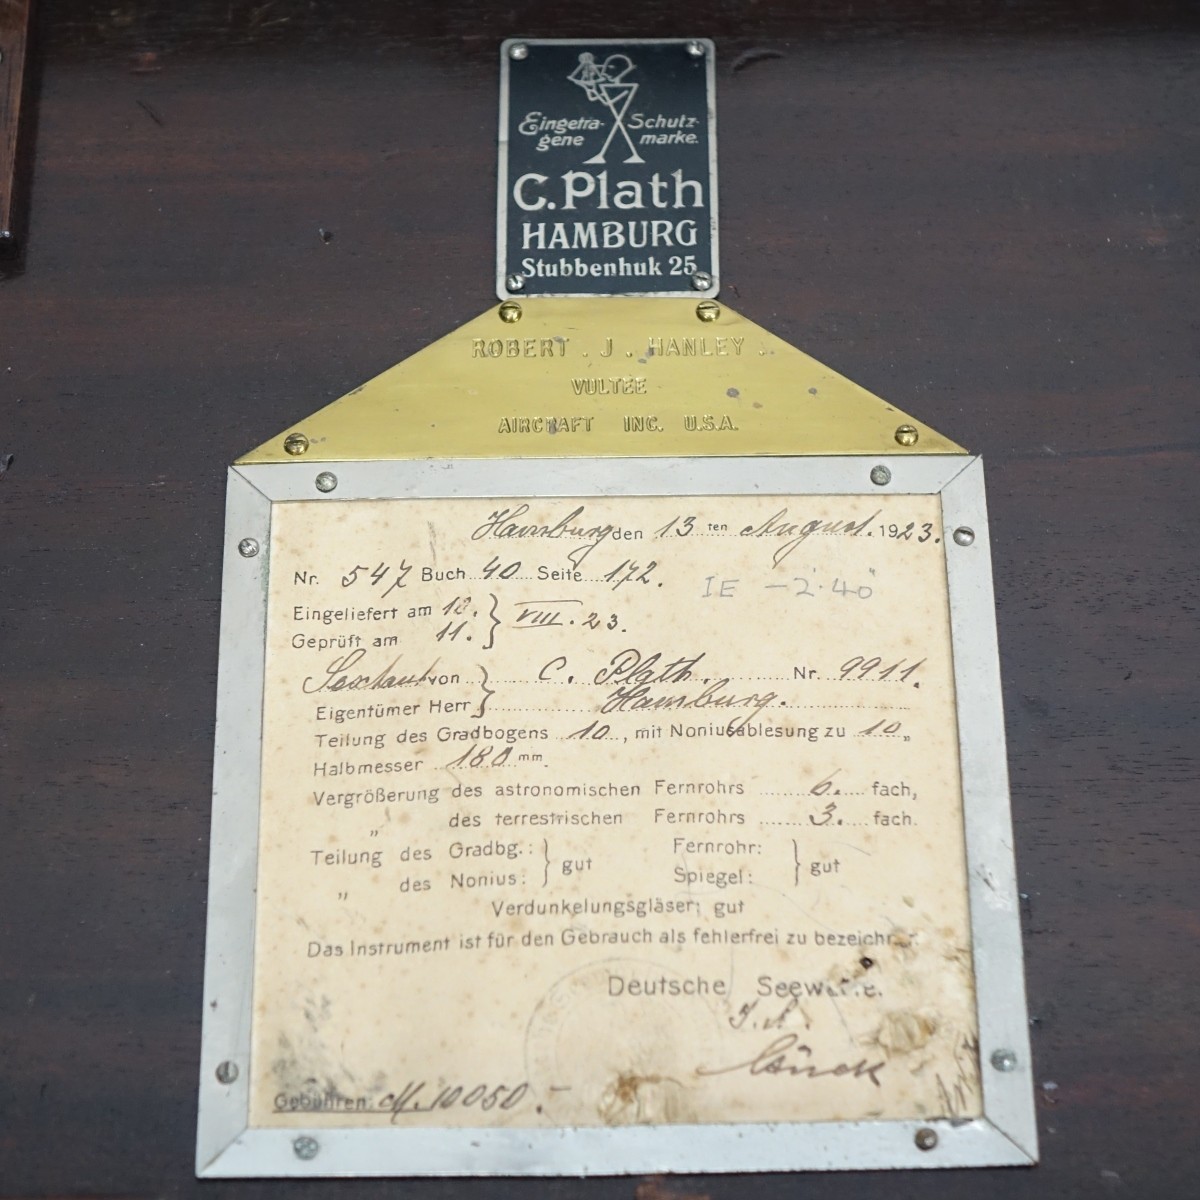 Eingetra- Schutz-
gene marke.
C. Plath
HAMBURG
Stubbenhuk 25
ROBERT . J . HANLEY .
VULTEE
AIRCRAFT INC. U.S.A.
Hamburg den 13 ten August. 1923.
Nr. 547 Buch 40 Seite 172.
IE - 2'·40"
Eingeliefert am 10. } VIII. 23.
Geprüft am 11.
Sextant von } C. Plath. Nr. 9911.
Eigentümer Herr Hamburg.
Teilung des Gradbogens 10, mit Noniusablesung zu 10"
Halbmesser 180 mm.
Vergrößerung des astronomischen Fernrohrs 6. fach,
" des terrestrischen Fernrohrs 3. fach.
Teilung des Gradbg.: } gut Fernrohr: } gut
" des Nonius: Spiegel:
Verdunkelungsgläser: gut
Das Instrument ist für den Gebrauch als fehlerfrei zu bezeichnen.
Deutsche Seewarte.
Gebühren: M. 10050.-